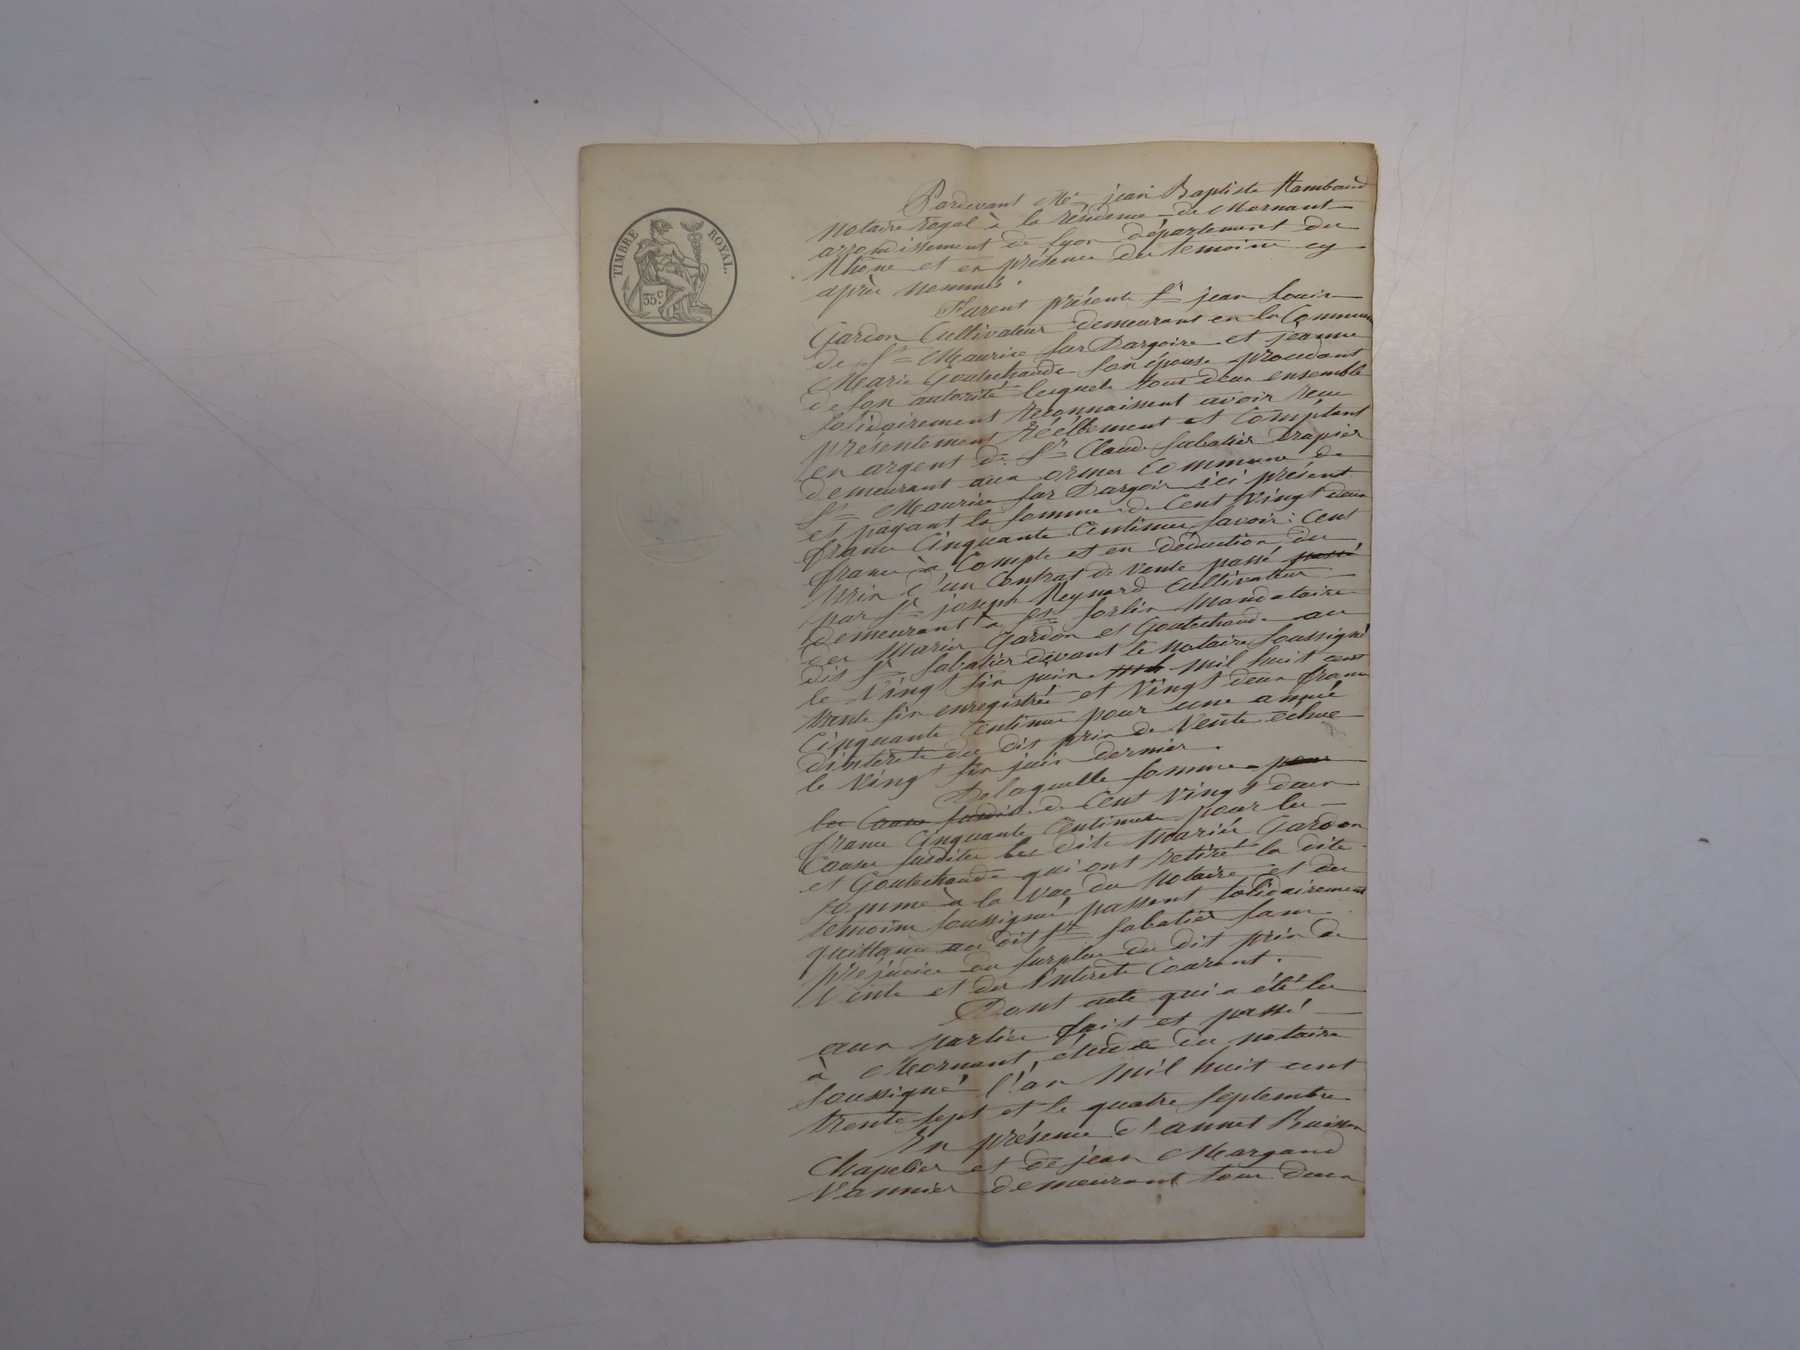 TIMBRE ROYAL.
35c.
Pardevant Me jean Baptiste Hambaud
Notaire royal à la résidence de Mornant
arrondissement de Lyon département du
Rhône et en présence des temoins cy
après nommés.
Furent présents Sr jean Louis
Gardon Cultivateur demeurant en la Commune
de St Maurice sur Dargoire et jeanne
Marie Goutechaude son épouse procedant
de son autorité lesquels tous deux ensemble
solidairement reconnaissent avoir recu
présentement réellement et Comptant
en argent de Sr Claude Sabatier Drapier
demeurant aux ormes Commune de
St Maurice sur Dargoir ici présent
et payant la somme de Cent Vingt deux
francs Cinquante Centimes savoir: Cent
francs à Compte et en déduction du
prix d'un Contrat de Vente passé passé
par Sr joseph Reynard Cultivateur
demeurant à St Sorlin Mandataire
des Mariés Gardon et Goutechaude au
dit Sr Sabatier devant le Notaire soussigné
le Vingt six juin mil huit cent
trente six enregistré et Vingt deux francs
Cinquante Centimes pour une année
d'intérêts du dit prix de Vente échue
le Vingt six juin dernier.
Delaquelle somme pour
les Causes susdites de Cent Vingt deux
francs Cinquante Centimes pour les
Causes susdites les dits mariés Gardon
et Goutechaude qui ont retiré la dite
somme à la Vue du Notaire et des
temoins soussignés, passent solidairement
quittance au dit Sr Sabatier sans
préjudice du surplus du dit prix de
Vente et des intérêts Courant.
Dont acte qui a été lu
aux parties fait et passé
à Mornant, étude du notaire
soussigné l'an Mil huit cent
trente sept et le quatre septembre
En présence d'annet Buisson
Chapelier et de jean Margand
Vannier demeurant tous deux